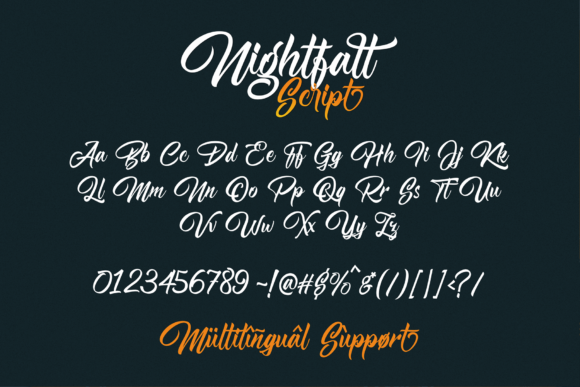 Nightfall
Script
Aa Bb Cc Dd Ee Ff Gg Hh Ii Jj Kk
Ll Mm Nn Oo Pp Qq Rr Ss Tt Uu
Vv Ww Xx Yy Zz
0123456789 ~!@#$%^&(/)[|]<?/
Mültilîñguâl Sùppørt